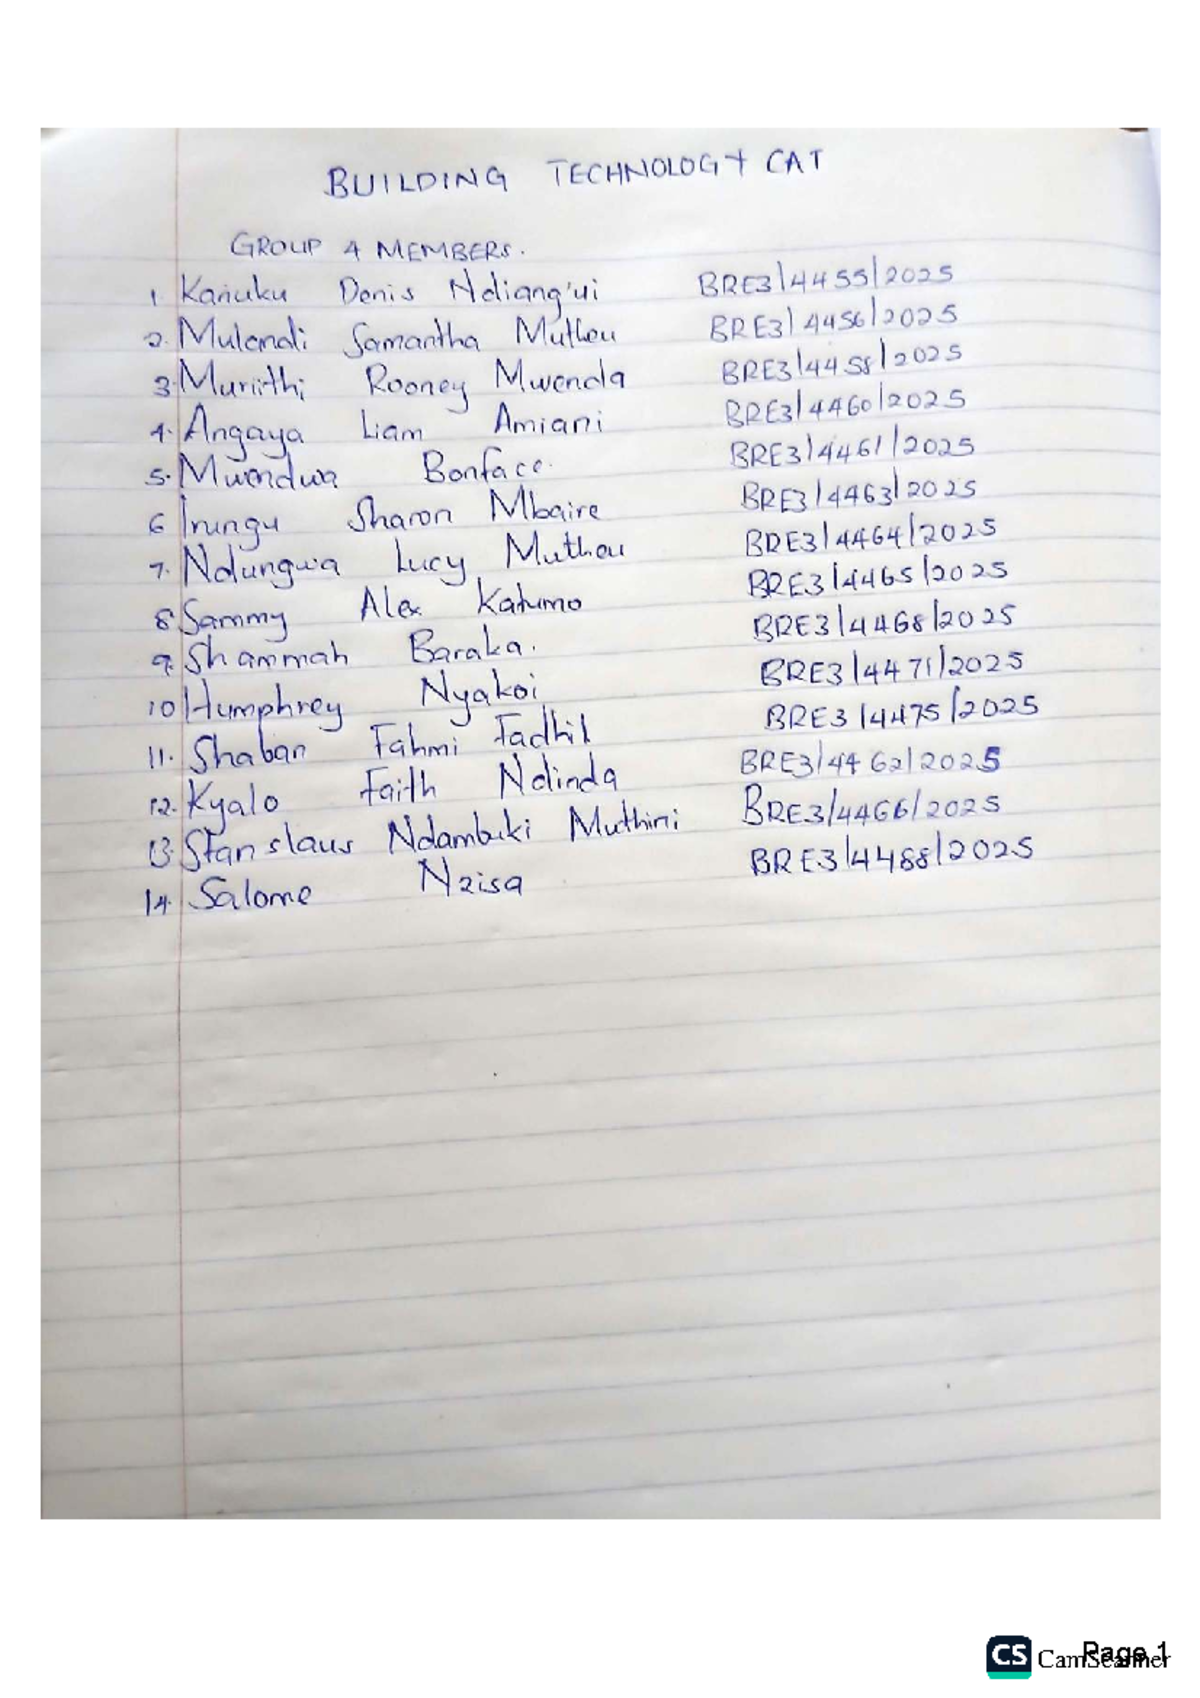 BUILDING TECHNOLOGY CAT
GROUP 4 MEMBERS.
1. Kanuku Denis Ndiang'ui BRE3/4455/2025
2. Mulandi Samantha Mutheu BRE3/4456/2025
3. Muriithi Rooney Mwenda BRE3/4458/2025
4. Angaya Liam Amiani BRE3/4460/2025
5. Mwendwa Bonface. BRE3/4461/2025
6 Irungu Sharon Mbaire BRE3/4463/2025
7. Ndungwa Lucy Mutheu BRE3/4464/2025
8. Sammy Alex Katumo BRE3/4465/2025
9. Shammah Baraka. BRE3/4468/2025
10 Humphrey Nyakoi BRE3/4471/2025
11. Shaban Fahmi Fadhil BRE3/4475/2025
12. Kyalo Faith Ndinda BRE3/4462/2025
13. Stanslaus Ndambuki Muthini BRE3/4466/2025
14. Salome Nzisa BRE3/4488/2025
CS CamScanner
Page 1